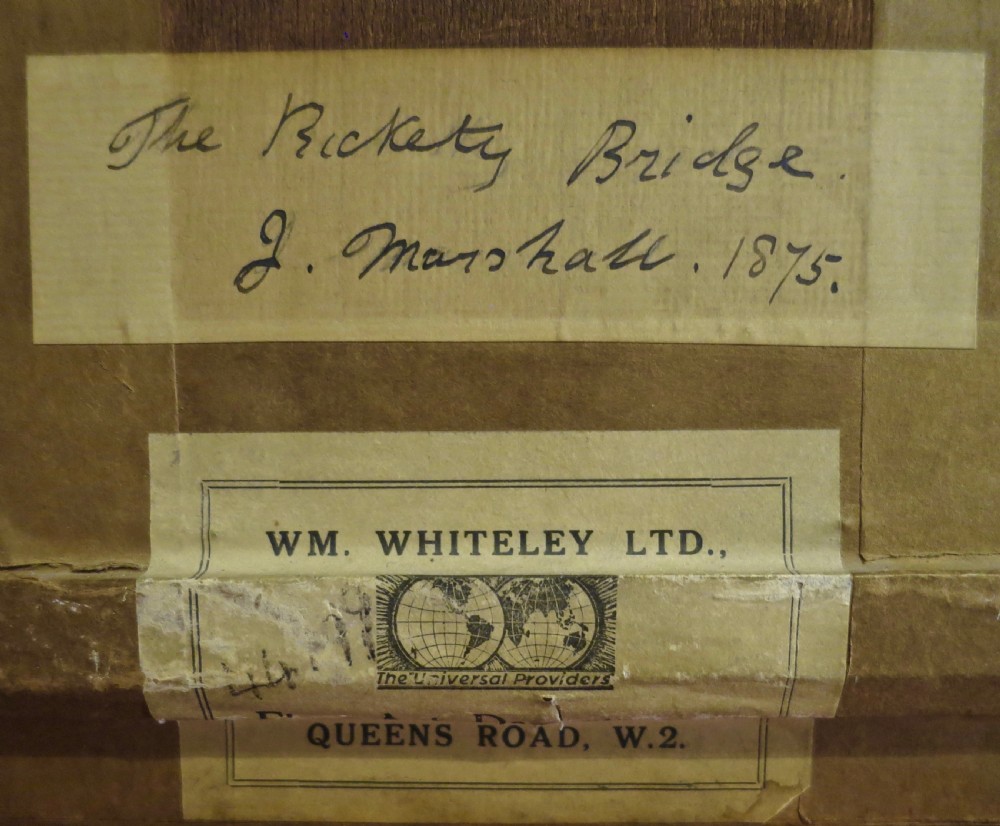 The Rickety Bridge.
J. Marshall. 1875.
WM. WHITELEY LTD.,
The Universal Providers
QUEENS ROAD, W.2.